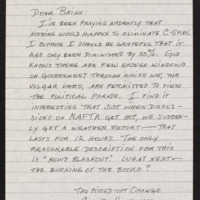 DEAR BRIAN:
I'VE BEEN PRAYING ARDENTLY THAT
NOTHING WOULD HAPPEN TO ELIMINATE C-SPAN.
I SUPPOSE I SHOULD BE GRATEFUL THAT IT
HAS ONLY BEEN DIMINISHED BY 50%. GOD
KNOWS THERE ARE FEW ENOUGH WINDOWS
ON GOVERNMENT THROUGH WHICH WE, THE
VULGAR HORD, ARE PERMITTED TO VIEW
THE POLITICAL PARADE. I FIND IT
INTERESTING THAT JUST WHEN DISCUS-
SIONS ON NAFTA GET HOT, WE SUDDEN-
LY GET A WEATHER REPORT — THAT
LASTS FOR 12 HOURS. THE ONLY
REASONABLE DESCRIPTION FOR THIS
IS "NEWS BLACKOUT." WHAT NEXT —
THE BURNING OF THE BOOKS?
ORANGE